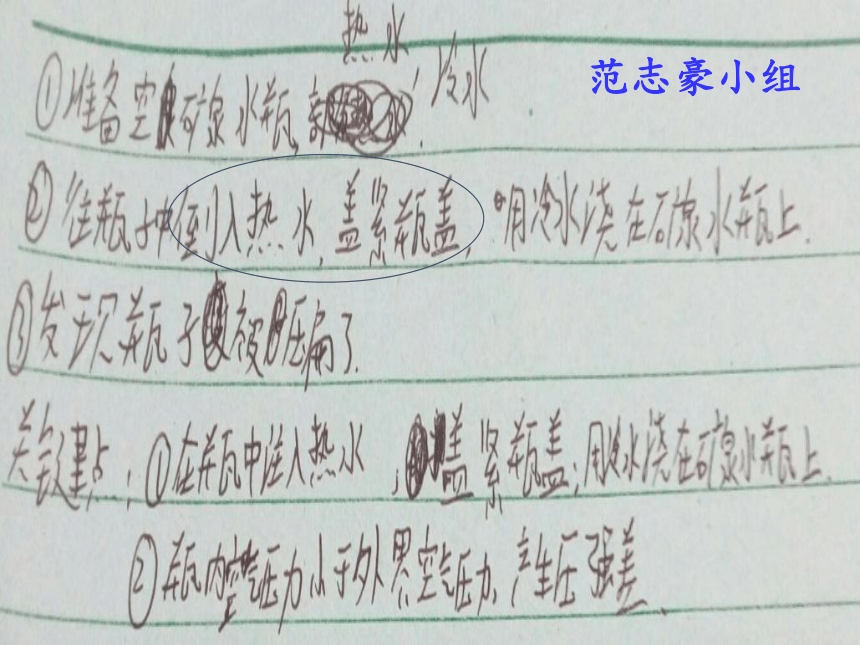 热水
①准备空矿泉水瓶, , 冷水.
范志豪小组
②往瓶子中倒入热水, 盖紧瓶盖, 用冷水浇在矿泉水瓶上.
③发现瓶子被压扁了.
关键点: ①在瓶中注入热水, 盖紧瓶盖; 用冷水浇在矿泉水瓶上.
②瓶内空气压力小于外界空气压力, 产生压强差.